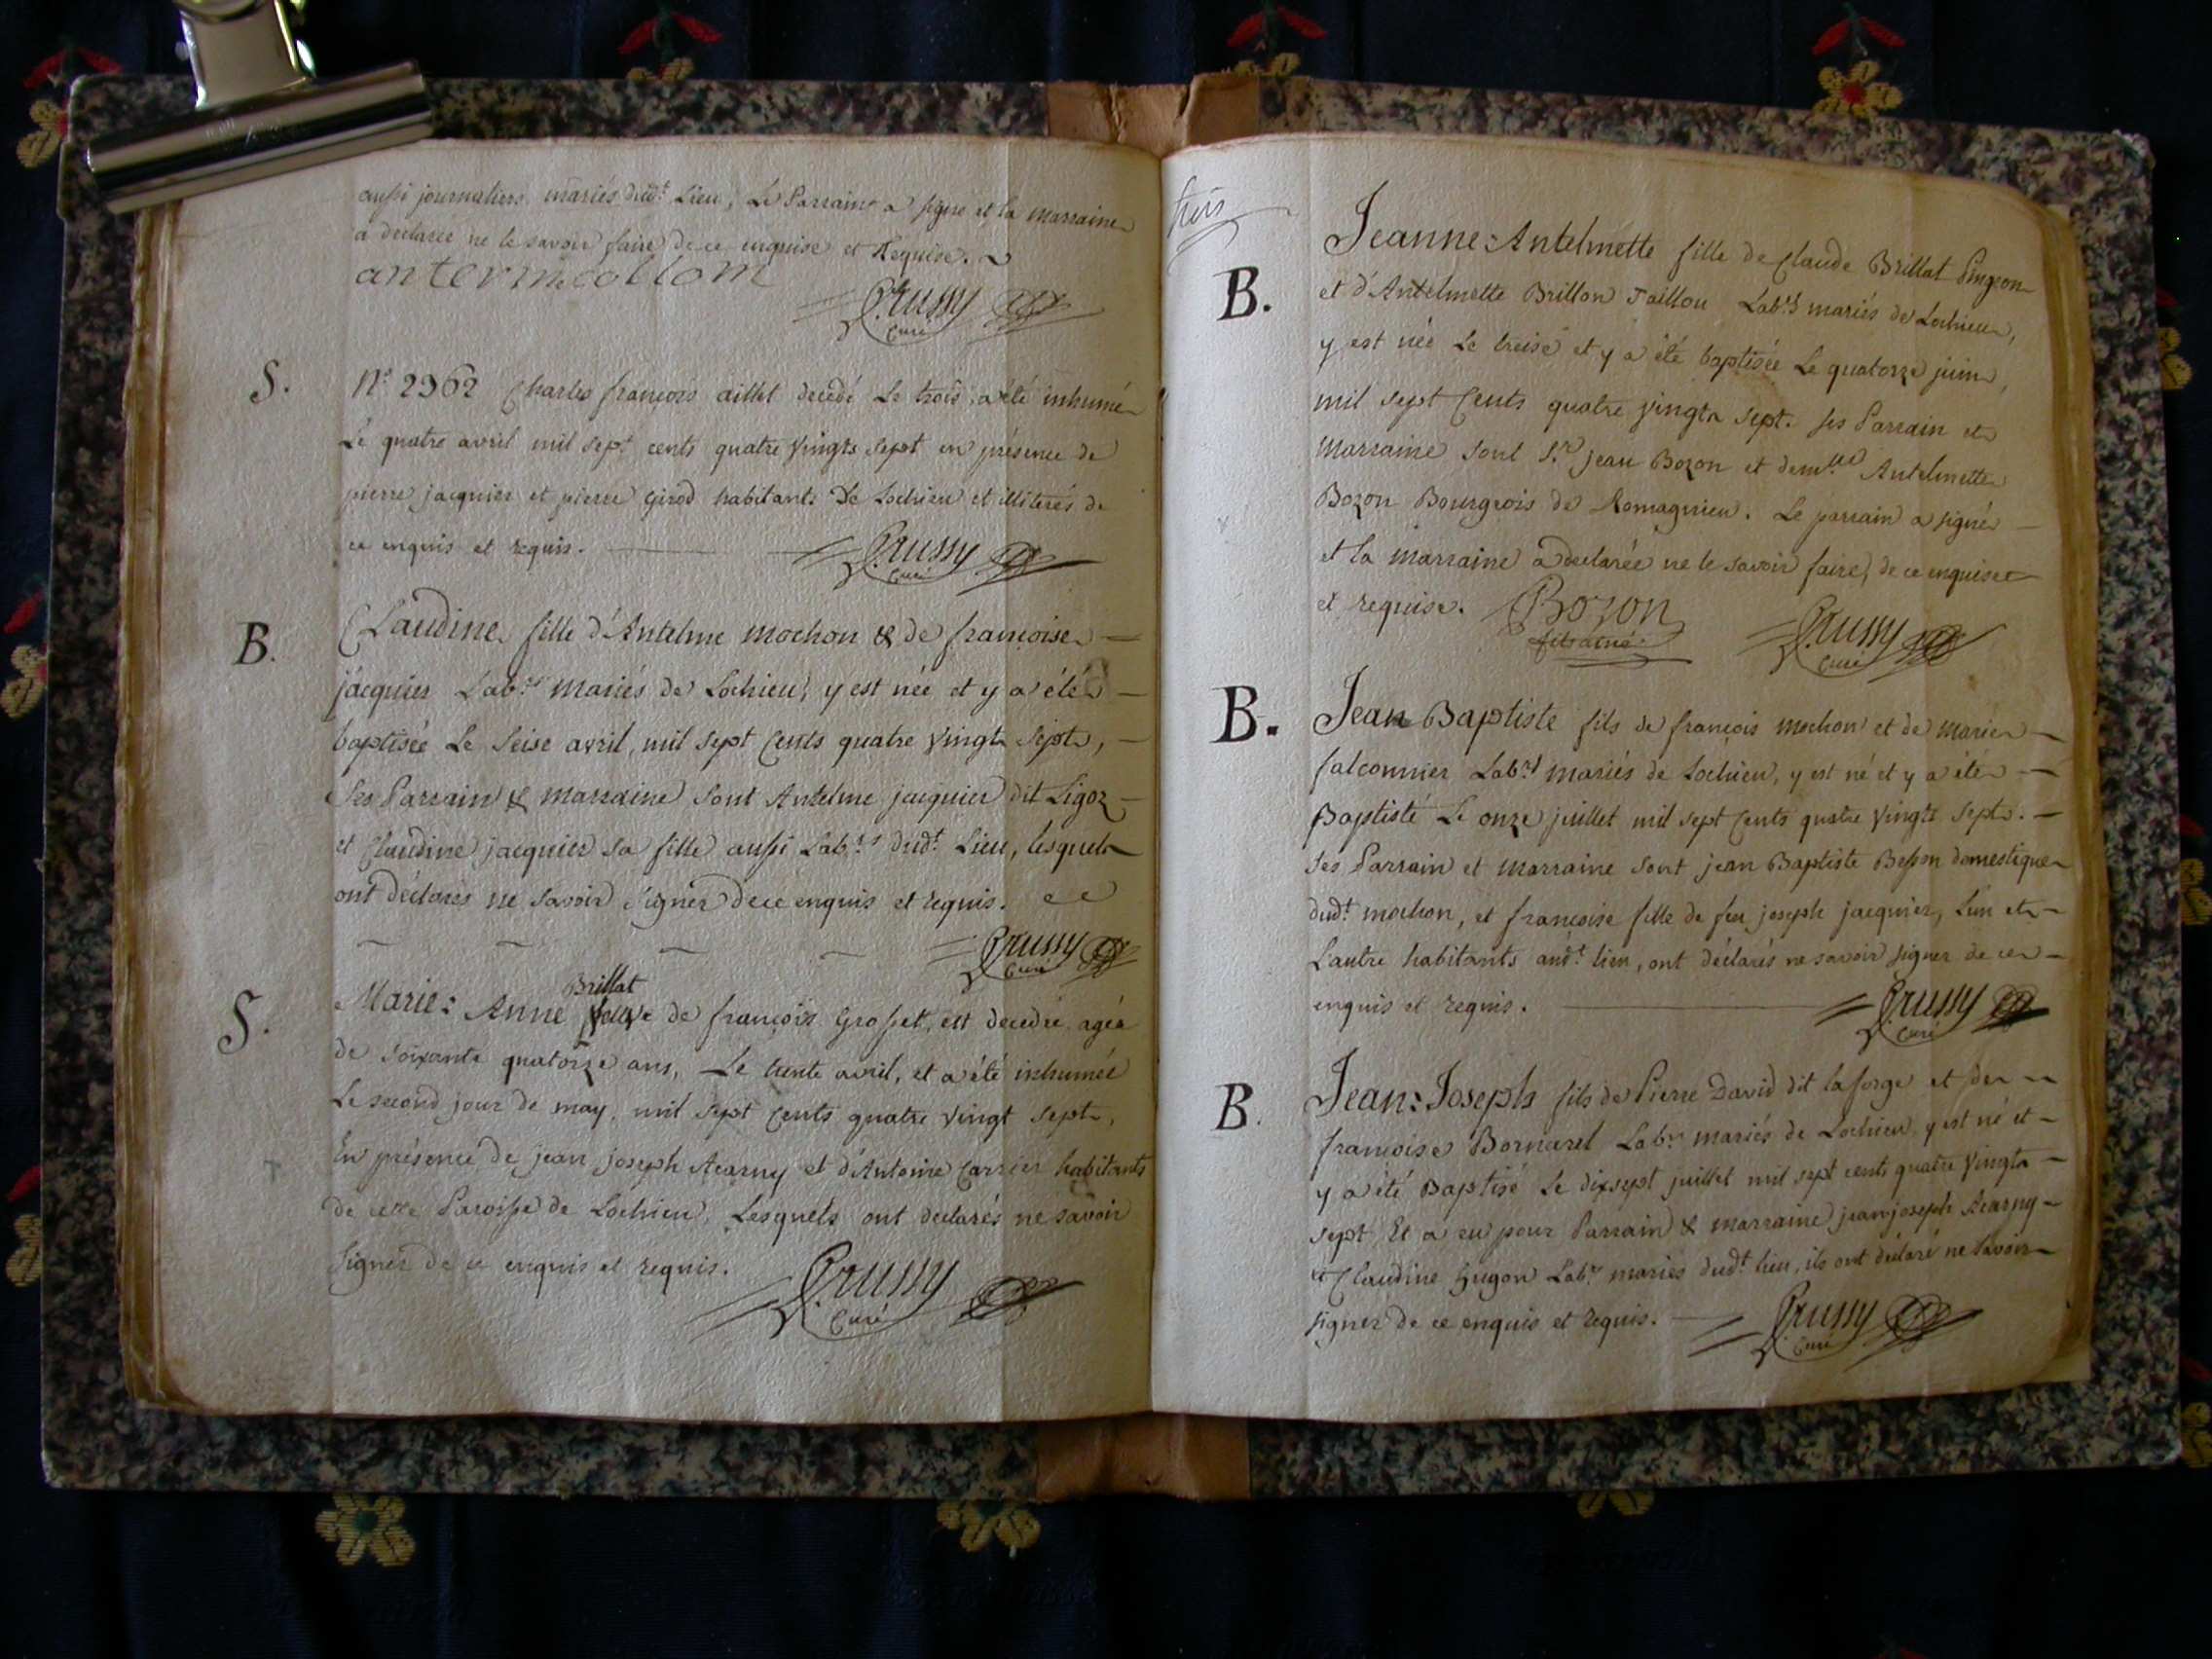 aussi journaliers mariés dud.t Lieu, Le Parrain a signé et la marraine
a declarée ne le savoir faire de ce enquise et Requise.
anterme collom
Crussy
Curé
S.
N.o 2962 Charles françois aillet decedé Le trois, a été inhumé
Le quatre avril mil sept cents quatre Vingts sept en présence de
pierre jacquier et pierre girod habitants De Lochieu et illiterés de
ce enquis et requis.
Crussy
Curé
B.
Claudine fille d'Antelme mochon & de françoise
jacquier Lab.rs mariés de Lochieu, y est née et y a été
baptisée Le Seise avril, mil sept Cents quatre Vingts Sept,
Ses Parrain & marraine sont Antelme jacquier dit Ligoz
et Claudine jacquier sa fille aussi Lab.rs dud.t Lieu, lesquels
ont déclarés ne savoir signer de ce enquis et requis.
Crussy
Curé
S.
Brillat
Marie: Anne de françois Grosset, est decedée agée
de soixante quatorze ans, Le trente avril, et a été inhumée
Le second jour de may, mil sept Cents quatre Vingt sept,
En présence de jean joseph Acarny et d'Antoine Carrier habitants
de cette Paroisse de Lochieu, Lesquels ont declarés ne savoir
Signer de ce enquis et requis.
Crussy
Curé
trois
B.
Jeanne: Antelmette fille de Claude Brillat Pingeon
et d'Antelmette Brillon Taillou Lab.rs mariés de Lochieu,
y est née Le treise et y a été baptisée Le quatorze juin,
mil sept Cents quatre vingts sept. ses Parrain et
Marraine sont S.r jean Bozon et dem.lle Antelmette
Bozon Bourgeois de Romagnieu. Le parrain a signé
et la marraine a declarée ne le savoir faire, de ce enquise
et requise. Bozon
fils ainé
Crussy
Curé
B.
Jean Baptiste fils de françois mochon et de marie
falconnier Lab.rs mariés de Lochieu, y est né et y a été
Baptisté Le onze juillet mil sept Cents quatre Vingts sept.
Ses Parrain et marraine sont jean Baptiste Besson domestique
dud.t mochon, et françoise fille de feu joseph jacquier, L'un et
L'autre habitants aud.t lieu, ont déclarés ne savoir signer de ce
enquis et requis.
Crussy
Curé
B.
Jean: Joseph fils de Pierre David dit laforge et de
françoise Bornarel Lab.rs mariés de Lochieu y est né et
y a été Baptisé Le dixsept juillet mil sept cents quatre Vingts
sept, Et a eu pour Parrain & marraine jean joseph Acarny
et Claudine Gugon Lab.rs mariés dud.t lieu, ils ont déclaré ne Savoir
signer de ce enquis et requis.
Crussy
Curé